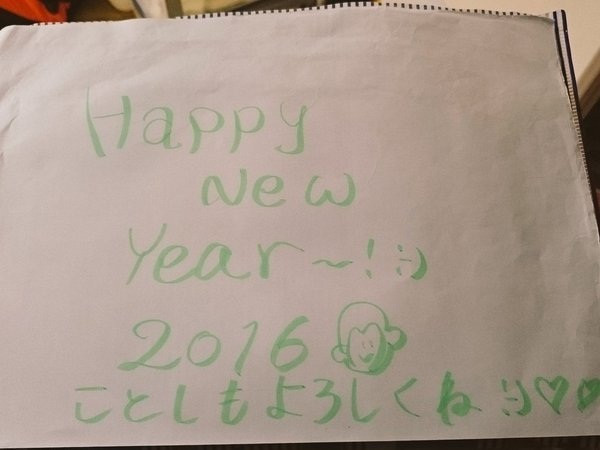 Happy
New
Year~! :)
2016
ことしもよろしくね :)♡♡